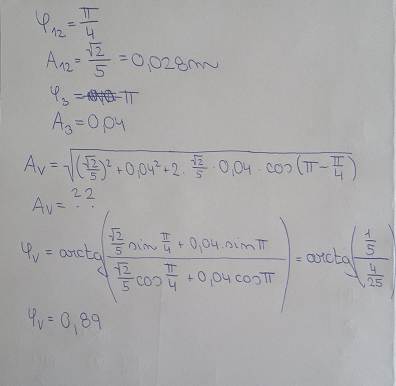 φ₁₂ = π/4
A₁₂ = √2/5 = 0,028m
φ₃ = π
A₃ = 0,04
Aᵥ = √((√2/5)² + 0,04² + 2 · √2/5 · 0,04 · cos(π - π/4))
Aᵥ = ??
φᵥ = arctg((√2/5 sin π/4 + 0,04 · sin π)/(√2/5 cos π/4 + 0,04 cos π)) = arctg((1/5)/(4/25))
φᵥ = 0,89